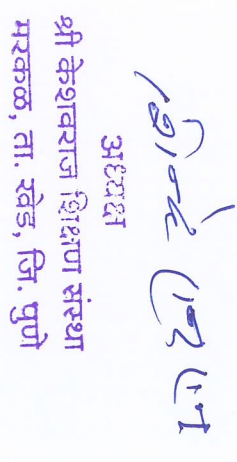 अध्यक्ष
श्री केशवराज शिक्षण संस्था
मरकळ, ता. खेड, जि. पुणे